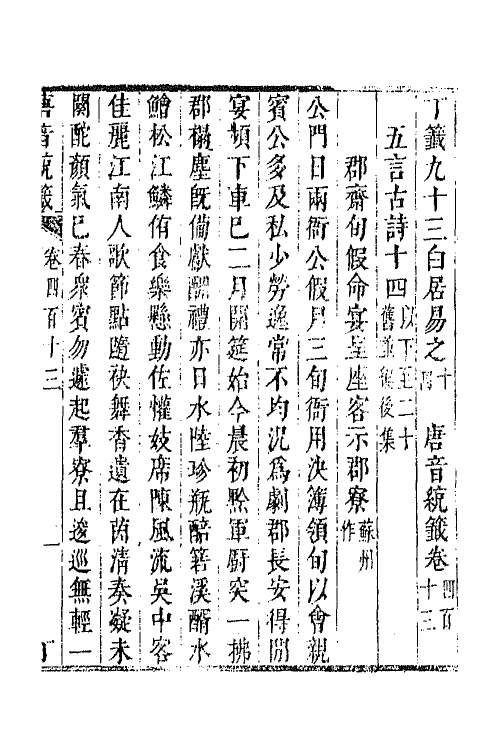 丁籤九十三白居易之十四　唐音統籤卷四百十三
五言古詩十四以下至二十舊並編後集
郡齋旬假命宴呈座客示郡寮蘇州作
公門日兩衙公假月三旬衙用決簿領旬以會親
賓公多及私少勞逸常不均況爲劇郡長安得閒
宴頻下車已二月開筵始今晨初黔軍廚突一拂
郡榻塵旣備獻酬禮亦日水陸珍瓶醅箬溪醑水
鱠松江鱗侑食樂懸動佐懽妓席陳風流吳中客
佳麗江南人歌節點隨袂舞香遺在茵清奏凝未
闋酡顏氣已春衆賓勿遽起羣寮且逡巡無輕一
唐音統籤 卷四百十三 一 丁